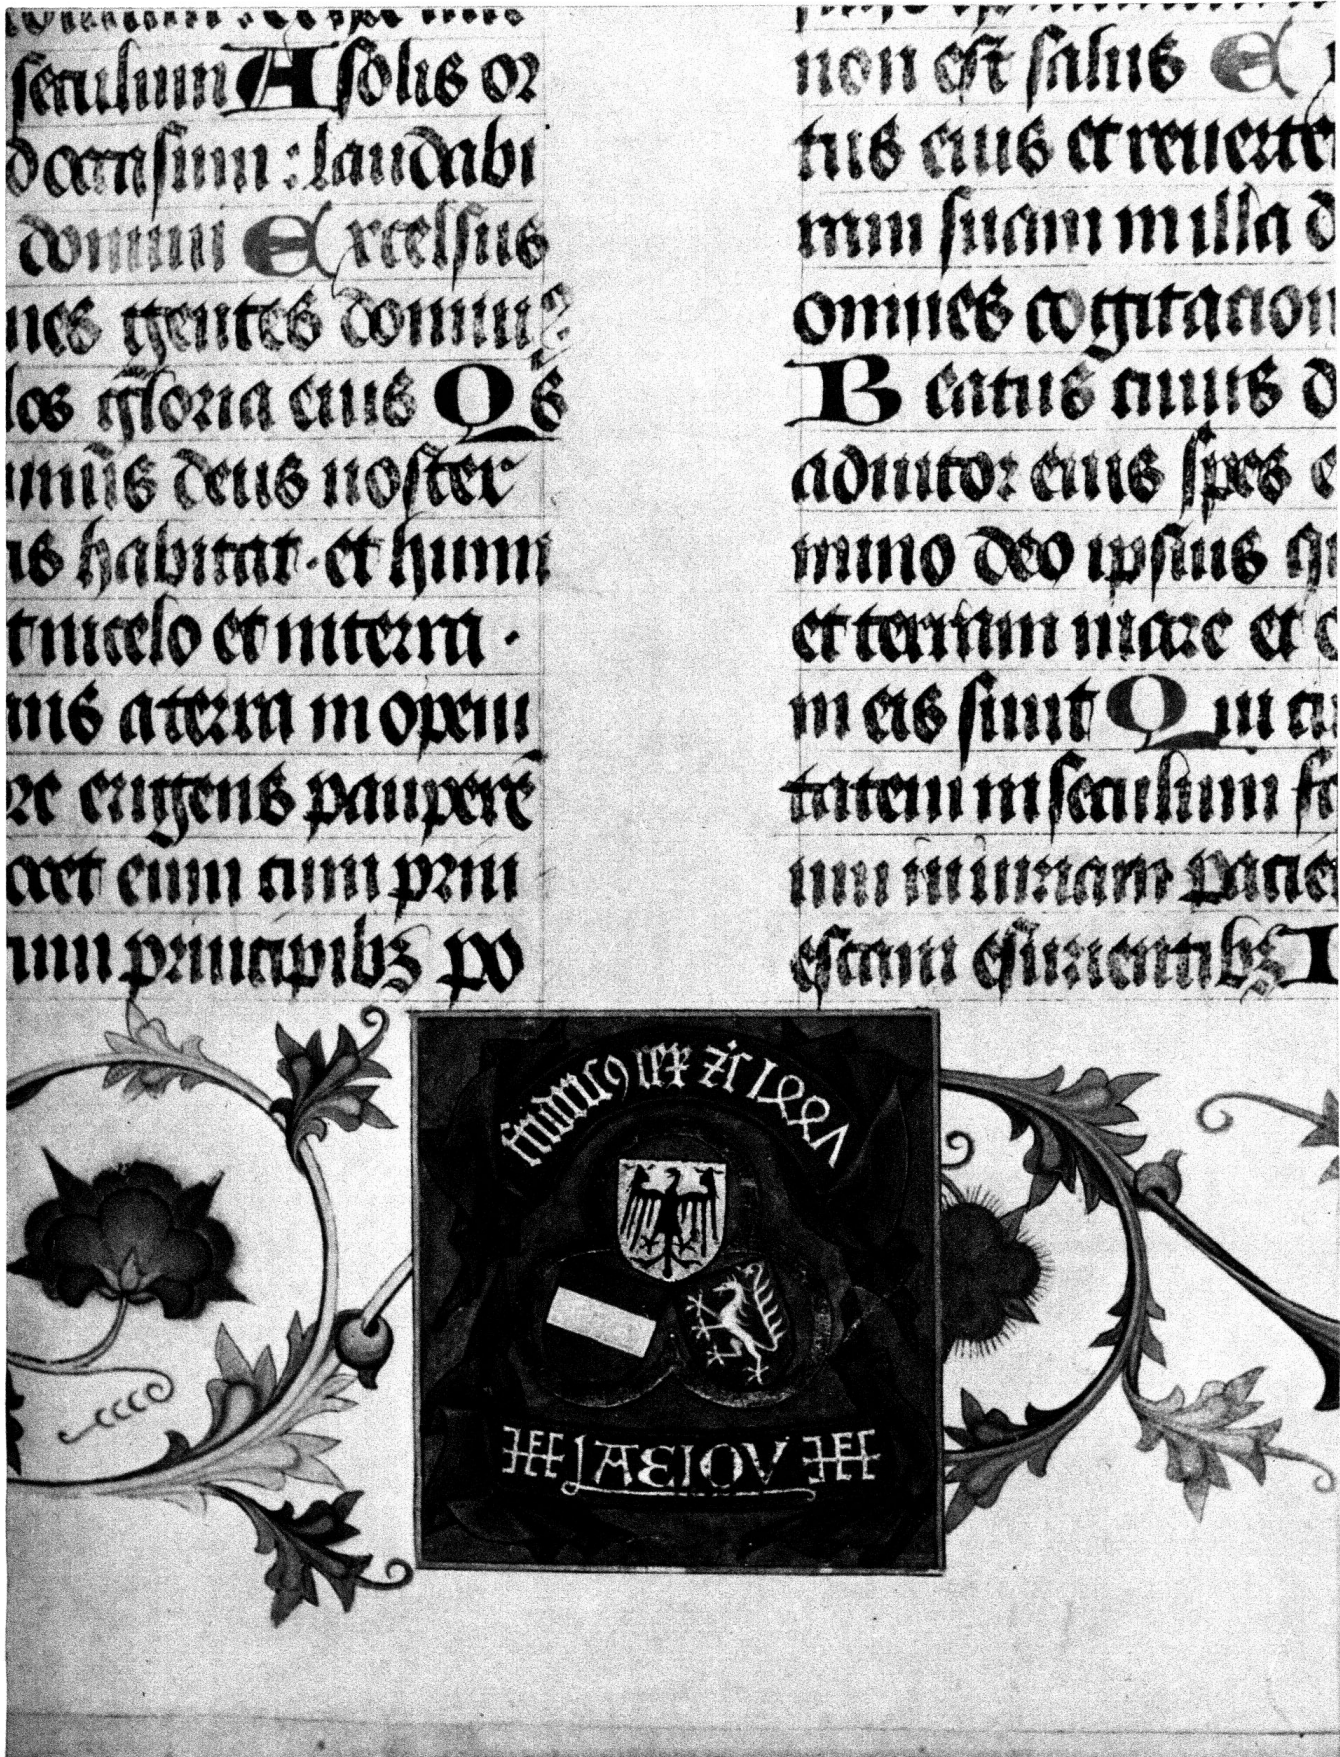 seculum A solis or
d occasum : laudabi
domini Excelsus
nes gentes domin9
los gloria eius Qs
minus deus noster
is habitat · et humi
t in celo et in terra ·
ns a terra inopem
re erigens pauperē
cet eum cum prin
cum principibꝫ po
non est salus E
tus eius et reuerte
ram suam in illa d
omnes cogitacion
Beatus cuius d
adiutor eius spes e
mino deo ipsius qui
et terram mare et o
in eis sunt Qui cu
tatem in seculum fa
um iniuriam pacie
escam esurientibꝫ
fridric9 rex ꝛc 1447
AEIOV